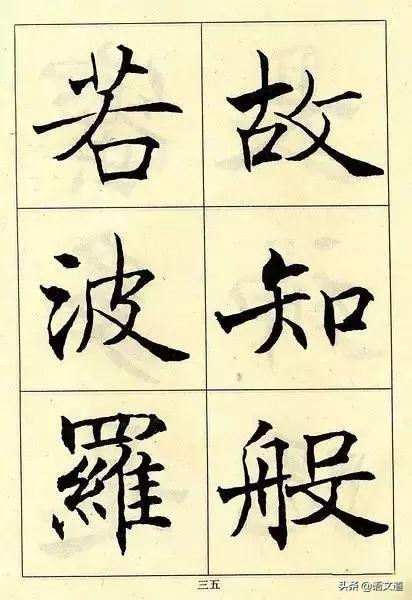 故知般
若波羅
三五
头条 @语文道